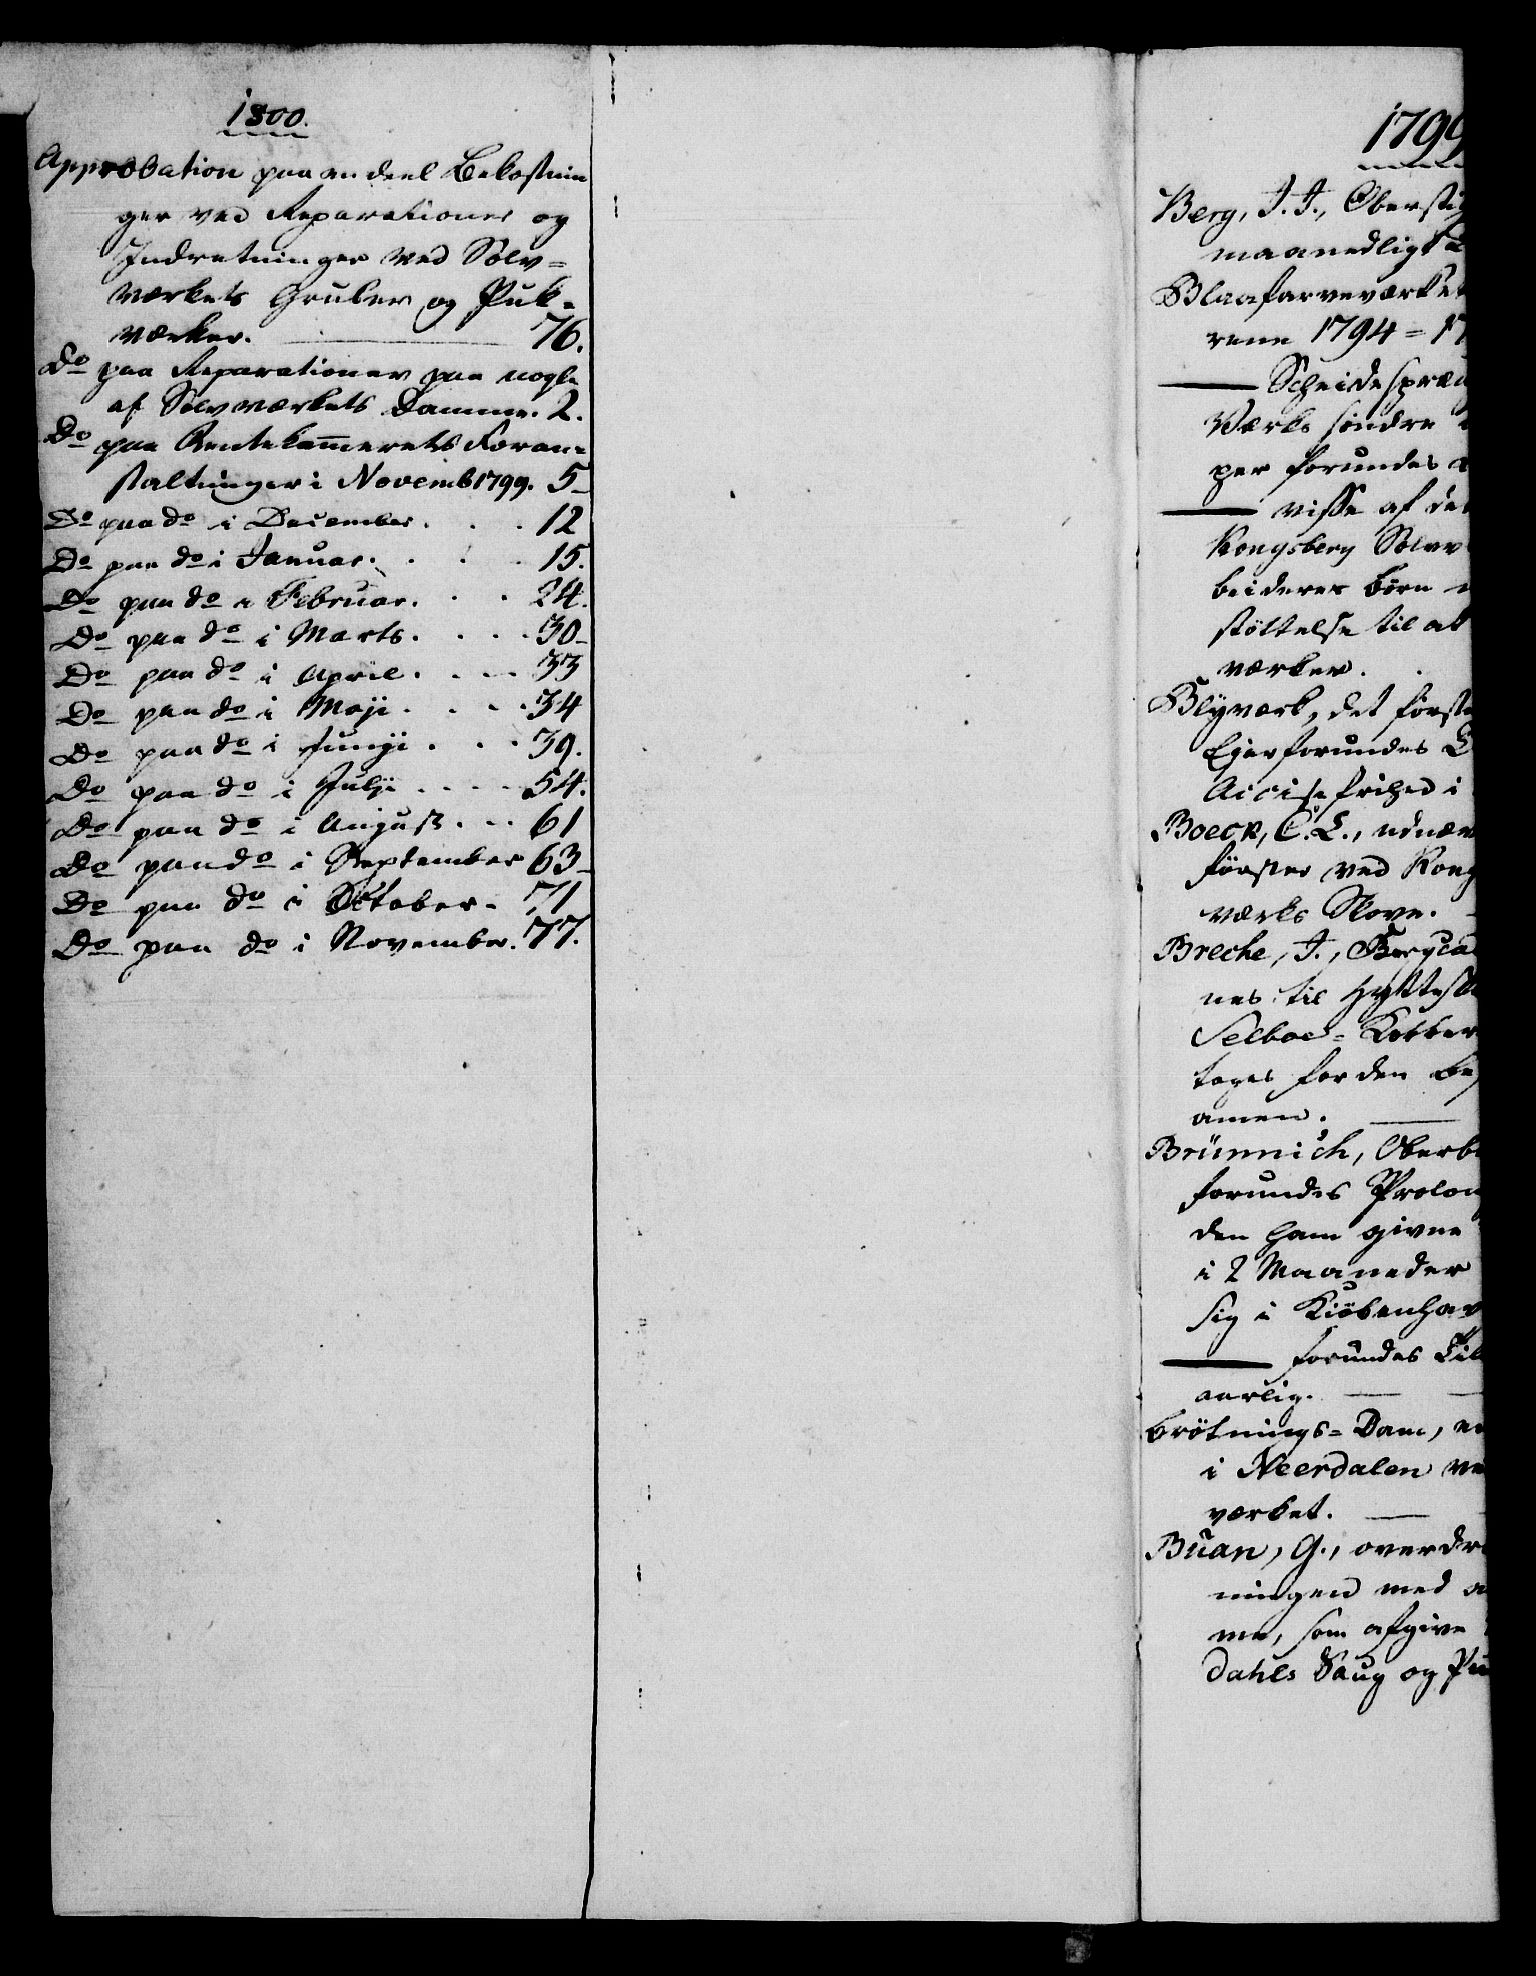 1800.
Approbation paa en deel Bekostnin
ger ved Reparationer og
Indretninger ved Sölv=
værkets Gruber og Puk=
værker. 76.
Do paa Reparationer paa nogle
af Sölvværkets Damme. 2.
Do paa Rentekam̅erets Foran=
staltninger i Novemb 1799. 5
Do paa do i December. . . . 12
Do paa do i Januar. . . . 15.
Do paa do i Februar. . . 24.
Do paa do i Marts. . . . 30
Do paa do i April. . . . 33
Do paa do i Maji. . . . 34
Do paa do i Junji . . . 39.
Do paa do i Julji . . . . 54.
Do paa do i August. . . 61
Do paa do i September 63
Do paa do i October. 71
Do paa do i November. 77.
1799
Berg, J. J., Obersti
maanedligt
Blaafarveværket
rene 1794 = 17
Scheidespræn
Værks söndre
per forundes
visse af de
Kongsberg Sölvv
beideres Börn
stöttelse til at
værker.
Blÿværk, det förste
Ejer forundes
Accise frihed i
Boeck, C. L., udnæv
förster ved Kong
værks Skove.
Breche, J., Bergca
nes til Hyttesk
Selboe= Kobber
tages for den
amen.
Brünnich, Oberb
forundes Prolon
den ham givne
i 2 Maaneder
sig i Kiöbenhav
forundes Til
aarlig.
Brötnings= Dam, en
i Meerdalen ve
værket.
Buan, G., overdr
ningen med
me, som afgive
dahls Saug og Pu